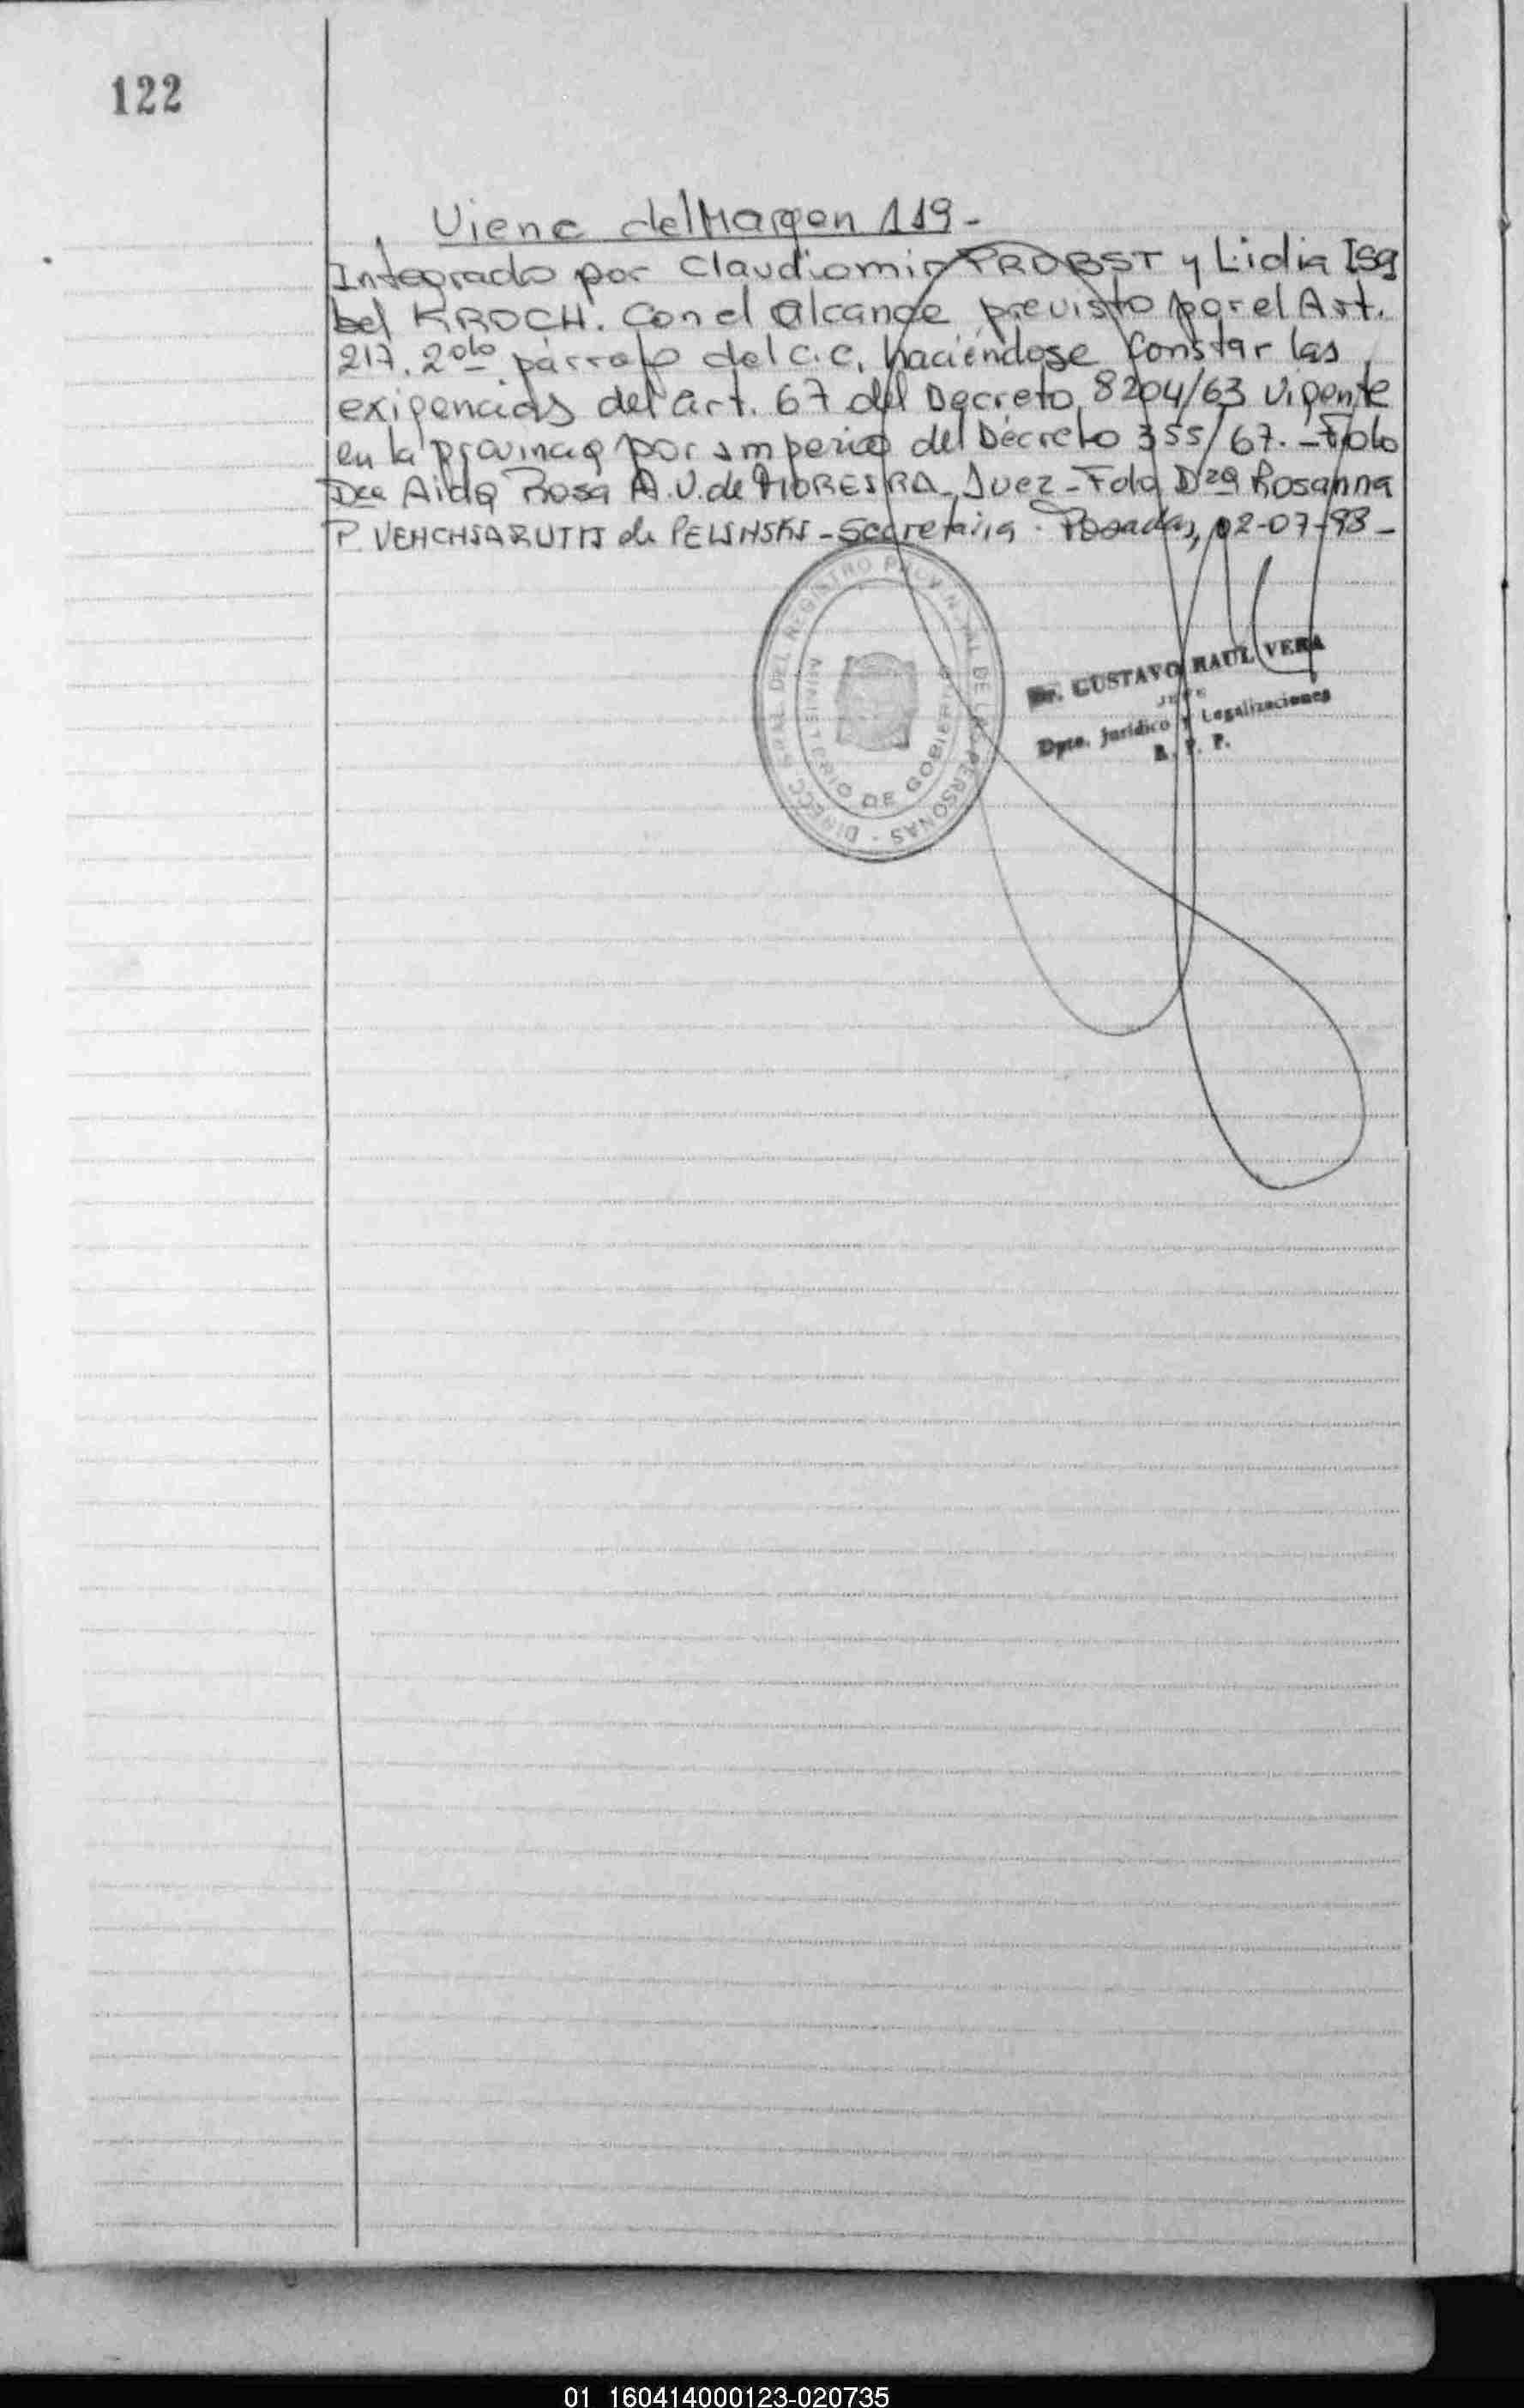 122
Viene del Margen 119-
Integrado por Claudiomir PROBST y Lidia Isa
bel KROCH. Con el alcance previsto por el Art.
217. 2do párrafo del c.c. haciéndose constar las
exigencias del art. 67 del Decreto 8204/63 vigente
en la provincia por imperio del Decreto 355/67.-Fdo
Dra Aida Rosa A.V. de - Juez - Fdo Dra Rosanna
P. VENCHIARUTTI de PELINSKI - Secretaria. Posadas, 02-07-98-
DIRECC. GRAL. DEL REGISTRO PROVINCIAL DE LAS PERSONAS -
MINISTERIO DE GOBIERNO
Dr. GUSTAVO RAUL VERA
JEFE
Dpto. Jurídico y Legalizaciones
R. P. P.
01 160414000123-020735